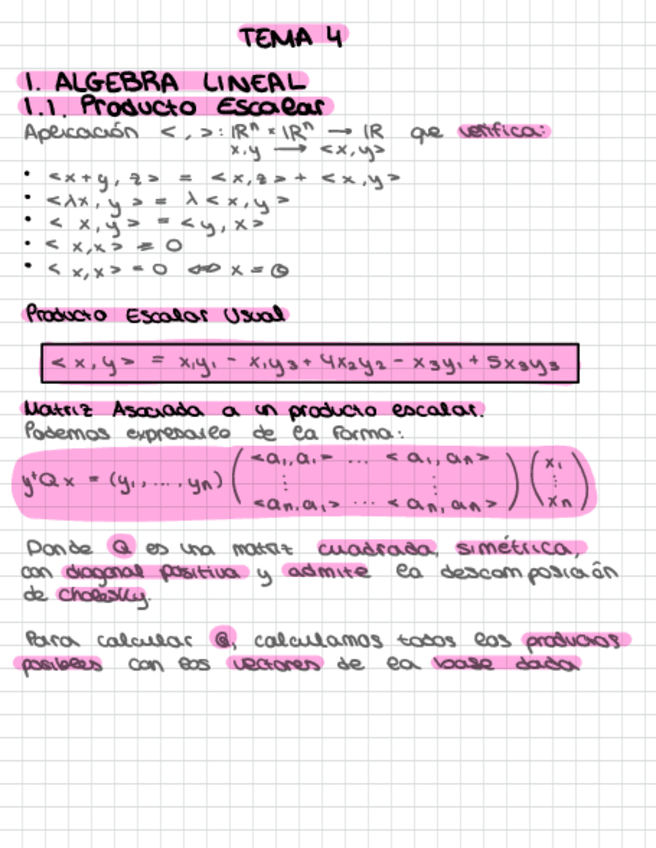 TEMA 4
1. ALGEBRA LINEAL
1.1. Producto Escalar
Aplicación < , > : ℝⁿ × ℝⁿ → ℝ que verifica:
x,y → <x,y>
• <x+y, z> = <x,z> + <x,y>
• <λx, y> = λ<x,y>
• <x,y> = <y,x>
• <x,x> ≥ 0
• <x,x> = 0 ⇔ x = 0
Producto Escalar Usual
<x,y> = x₁y₁ - x₁y₃ + 4x₂y₂ - x₃y₁ + 5x₃y₃
Matriz Asociada a un producto escalar.
Podemos expresarlo de la forma:
<a₁,a₁> ... <a₁,an> x₁
yᵗQx = (y₁, ..., yn) ( ⋮ ⋮ ) ( ⋮ )
<an,a₁> ... <an,an> xn
Donde Q es una matriz cuadrada, simétrica,
con diagonal positiva y admite la descomposición
de Cholesky.
Para calcular Q, calculamos todos los productos
posibles con los vectores de la base dada